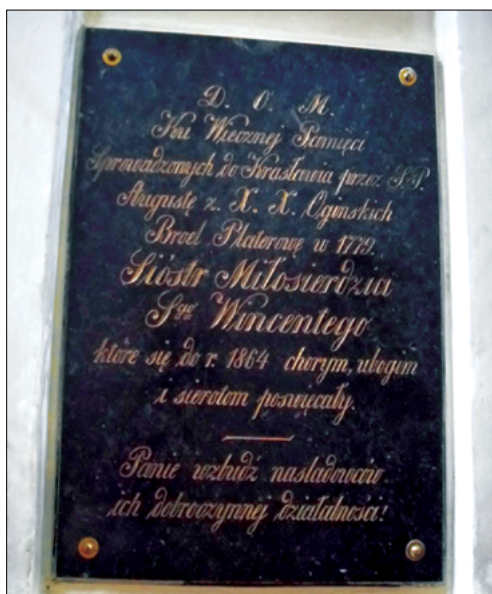 D. O. M.
Ku Wiecznej Pamięci
Sprowadzonych do Krasławia przez S.P.
Augustę z X. X. Oginskich
Broel Platerowę w 1779.
Sióstr Miłosierdzia
Sgo Wincentego
które się do r. 1864 chorym, ubogim
i sierotom poswięcały.
Panie wzbudź nasladowców
ich dobroczynnej działalności!